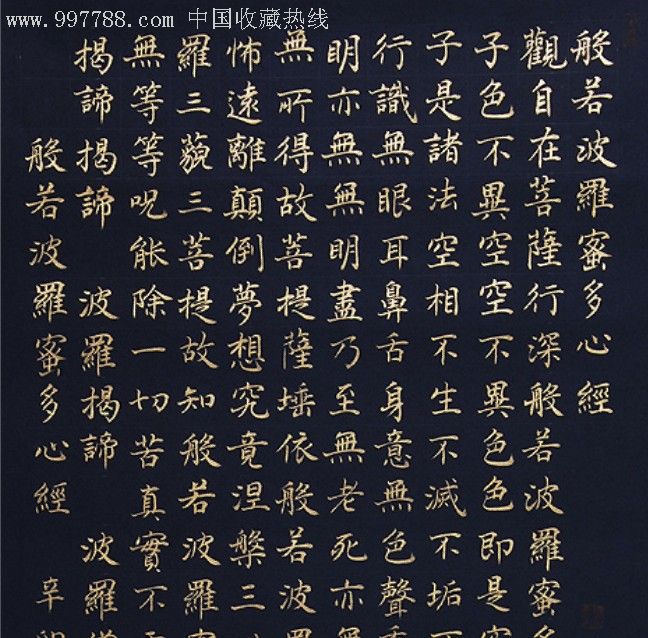 www.997788.com 中国收藏热线
般若波羅蜜多心經
觀自在菩薩行深般若波羅蜜多
子色不異空空不異色色即是
子是諸法空相不生不滅不垢不
行識無眼耳鼻舌身意無色聲香
明亦無無明盡乃至無老死亦無
無所得故菩提薩埵依般若波羅
怖遠離顛倒夢想究竟涅槃三
羅三藐三菩提故知般若波羅
無等等呪能除一切苦真實不
揭諦揭諦 波羅揭諦 波羅
般若波羅蜜多心經 辛卯